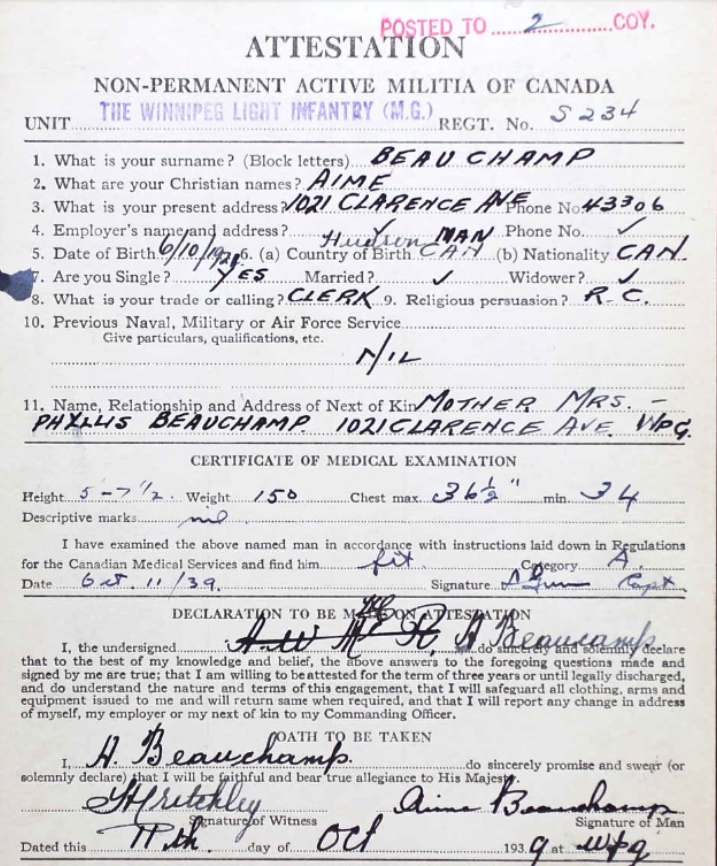 POSTED TO 2 COY.
ATTESTATION
NON-PERMANENT ACTIVE MILITIA OF CANADA
UNIT THE WINNIPEG LIGHT INFANTRY (M.G.) REGT. No. S 234
1. What is your surname? (Block letters) BEAUCHAMP
2. What are your Christian names? AIME
3. What is your present address? 1021 CLARENCE AVE Phone No. 43306
4. Employer's name and address? ✓ Phone No. ✓
5. Date of Birth 6/10/1921 6. (a) Country of Birth Hudson MAN CAN (b) Nationality CAN.
7. Are you Single? YES Married? ✓ Widower? ✓
8. What is your trade or calling? CLERK 9. Religious persuasion? R.C.
10. Previous Naval, Military or Air Force Service
Give particulars, qualifications, etc.
NIL
11. Name, Relationship and Address of Next of Kin MOTHER MRS. -
PHYLLIS BEAUCHAMP 1021 CLARENCE AVE. WPG.
CERTIFICATE OF MEDICAL EXAMINATION
Height 5-7½. Weight 150 Chest max. 36½" min 34
Descriptive marks nil
I have examined the above named man in accordance with instructions laid down in Regulations
for the Canadian Medical Services and find him fit. Category A.
Date Oct. 11/39. Signature Capt.
DECLARATION TO BE MADE ON ATTESTATION
I, the undersigned A Beaucamp do sincerely and solemnly declare
that to the best of my knowledge and belief, the above answers to the foregoing questions made and
signed by me are true; that I am willing to be attested for the term of three years or until legally discharged,
and do understand the nature and terms of this engagement, that I will safeguard all clothing, arms and
equipment issued to me and will return same when required, and that I will report any change in address
of myself, my employer or my next of kin to my Commanding Officer.
OATH TO BE TAKEN
I, A. Beauchamp. do sincerely promise and swear (or
solemnly declare) that I will be faithful and bear true allegiance to His Majesty.
H Critchley Aime Beauchamp
Signature of Witness Signature of Man
Dated this 11th. day of Oct 1939 at Wpg